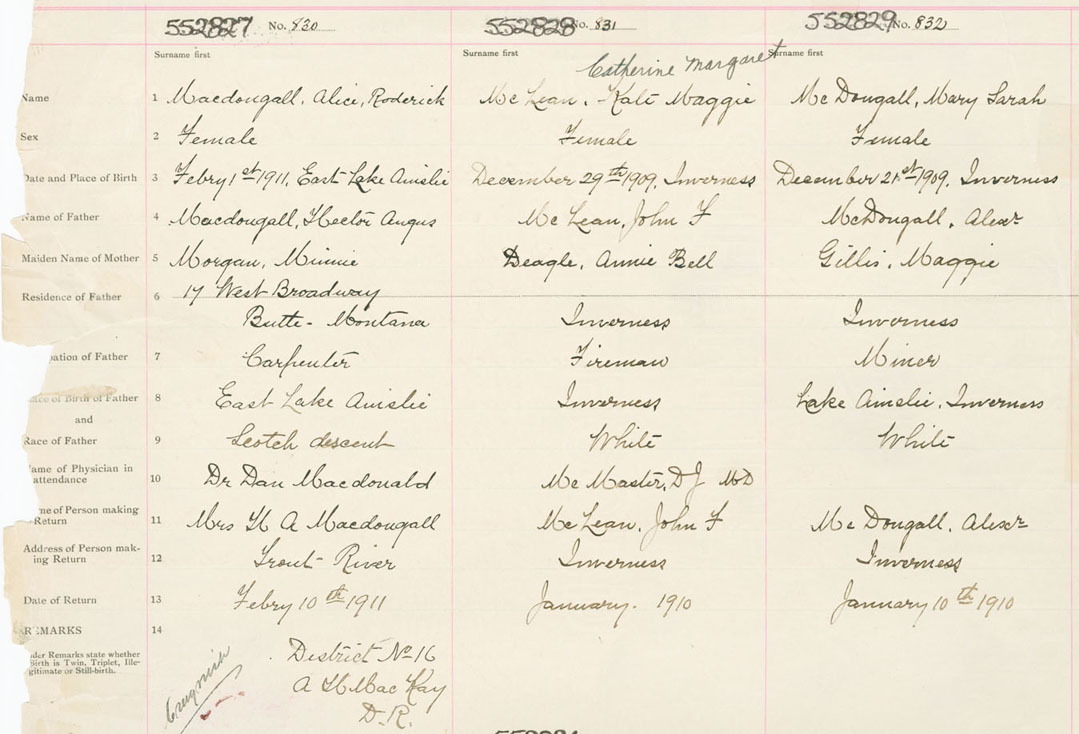 552827 No. 830 552828 No. 831 552829 No. 832
Surname first Surname first Surname first
Catherine Margaret
Name 1 Macdougall, Alice, Roderick Mc Lean, Kate Maggie McDougall, Mary Sarah
Sex 2 Female Female Female
Date and Place of Birth 3 Febry 1st 1911, East Lake Ainslie December 29th 1909, Inverness December 21st 1909, Inverness
Name of Father 4 Macdougall, Hector Angus Mc Lean, John F McDougall, Alexr
Maiden Name of Mother 5 Morgan, Minnie Deagle, Annie Bell Gillis, Maggie
Residence of Father 6 17 West Broadway
Butte - Montana Inverness Inverness
pation of Father 7 Carpenter Fireman Miner
lace of Birth of Father 8 East Lake Ainslie Inverness Lake Ainslie, Inverness
and
Race of Father 9 Scotch descent White White
ame of Physician in
attendance 10 Dr Dan Macdonald Mc Master, D J MD
me of Person making
Return 11 Mrs H A Macdougall Mc Lean, John F Mc Dougall, Alexr
Address of Person mak-
ing Return 12 Trout River Inverness Inverness
Date of Return 13 Febry 10th 1911 January. 1910 January 10th 1910
REMARKS 14
nder Remarks state whether
Birth is Twin, Triplet, Ille-
gitimate or Still-birth.
District No 16
A H Mac Kay
D.R.
Creignish